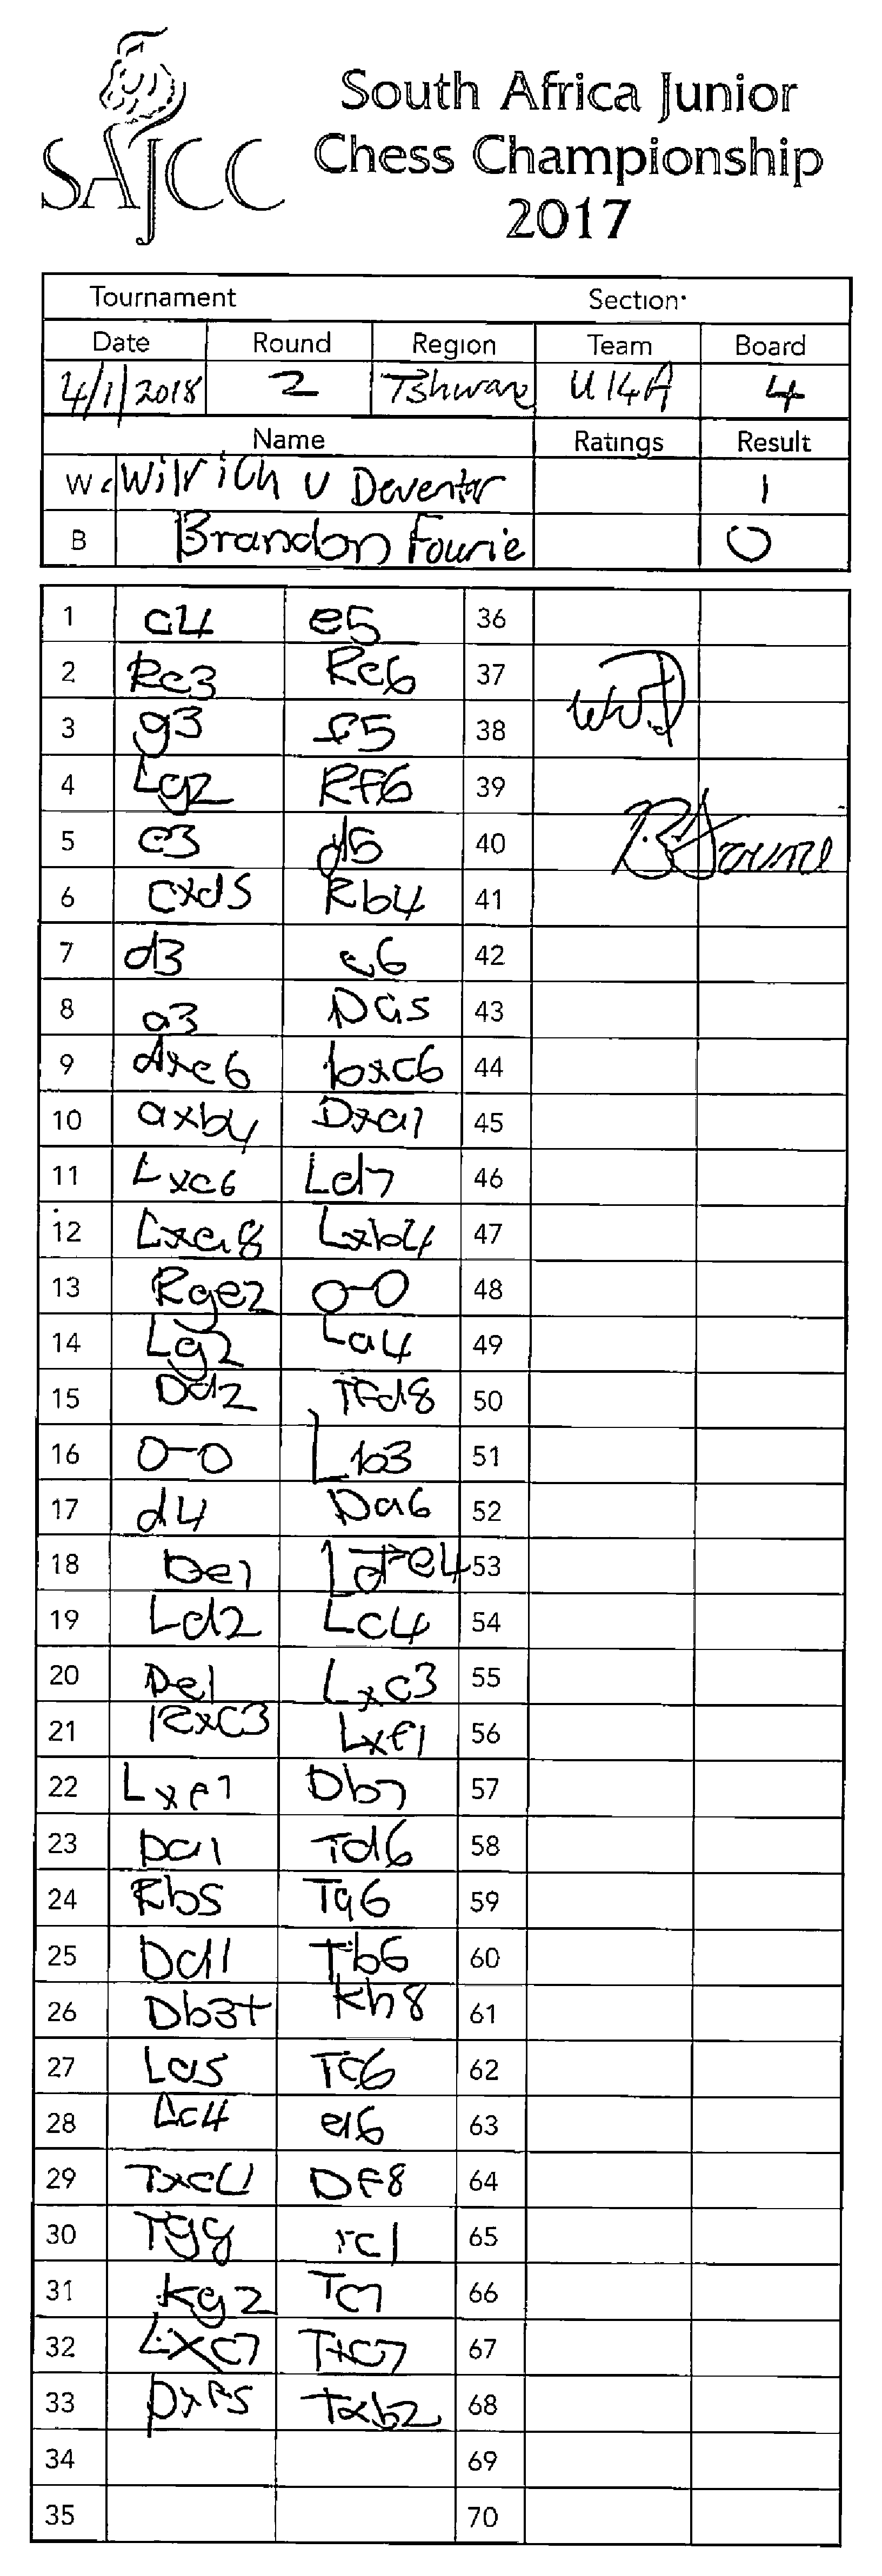 SAJCC
South Africa Junior
Chess Championship
2017
Tournament Section
Date Round Region Team Board
4/1/2018 2 Tshwane U14A 4
Name Ratings Result
W Wilrich v Deventer 1
B Brandon Fourie 0
1 c4 e5 36
2 Rc3 Rc6 37
3 g3 f5 38
4 Lg2 Rf6 39
5 e3 d5 40
6 cxd5 Rb4 41
7 d3 c6 42
8 a3 Da5 43
9 dxc6 bxc6 44
10 axb4 Dxa1 45
11 Lxc6 Ld7 46
12 Lxa8 Lxb4 47
13 Rge2 0-0 48
14 Lg2 La4 49
15 Dd2 Tfd8 50
16 0-0 Lb3 51
17 d4 Da6 52
18 De1 e4 53
19 Ld2 Lc4 54
20 De1 Lxc3 55
21 Rxc3 Lxf1 56
22 Lxf1 Db7 57
23 Da1 Td6 58
24 Rb5 Ta6 59
25 Dd1 Tb6 60
26 Db3+ Kh8 61
27 La5 Tc6 62
28 Lc4 a6 63
29 Txc4 Df8 64
30 Tg8 Tc1 65
31 Kg2 Tc7 66
32 Lxc7 Txc7 67
33 Dxf5 Txb2 68
34 69
35 70